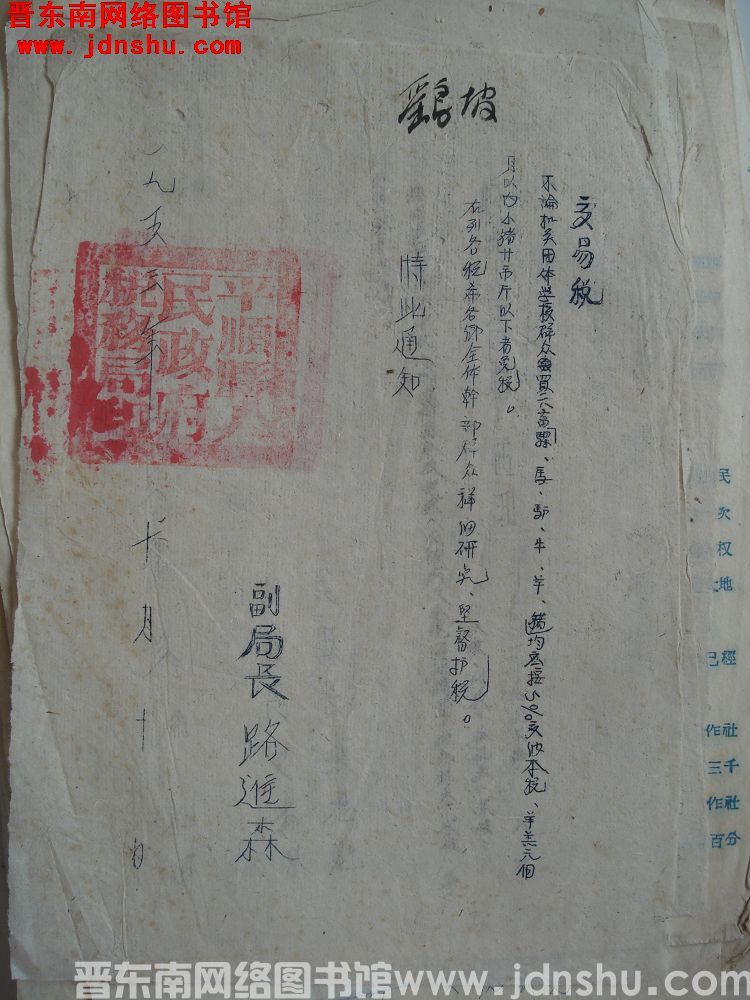 晋东南网络图书馆
www.jdnshu.com
交易税
不論机关团体学校群众买六畜騾、馬、驴、牛、羊、猪均应按5%交纳本税、羊羔六個
月以内小猪廿市斤以下者免税。
右列各税希各鄉全体幹部群众詳细研究、坚督护税。
特此通知
副局長 路進森
一九五三年
月 十日
平順縣人
民政府
税務局印
民 次 权 地
已 經
作 社
三 千
作 社
百 分
晋东南网络图书馆 www.jdnshu.com